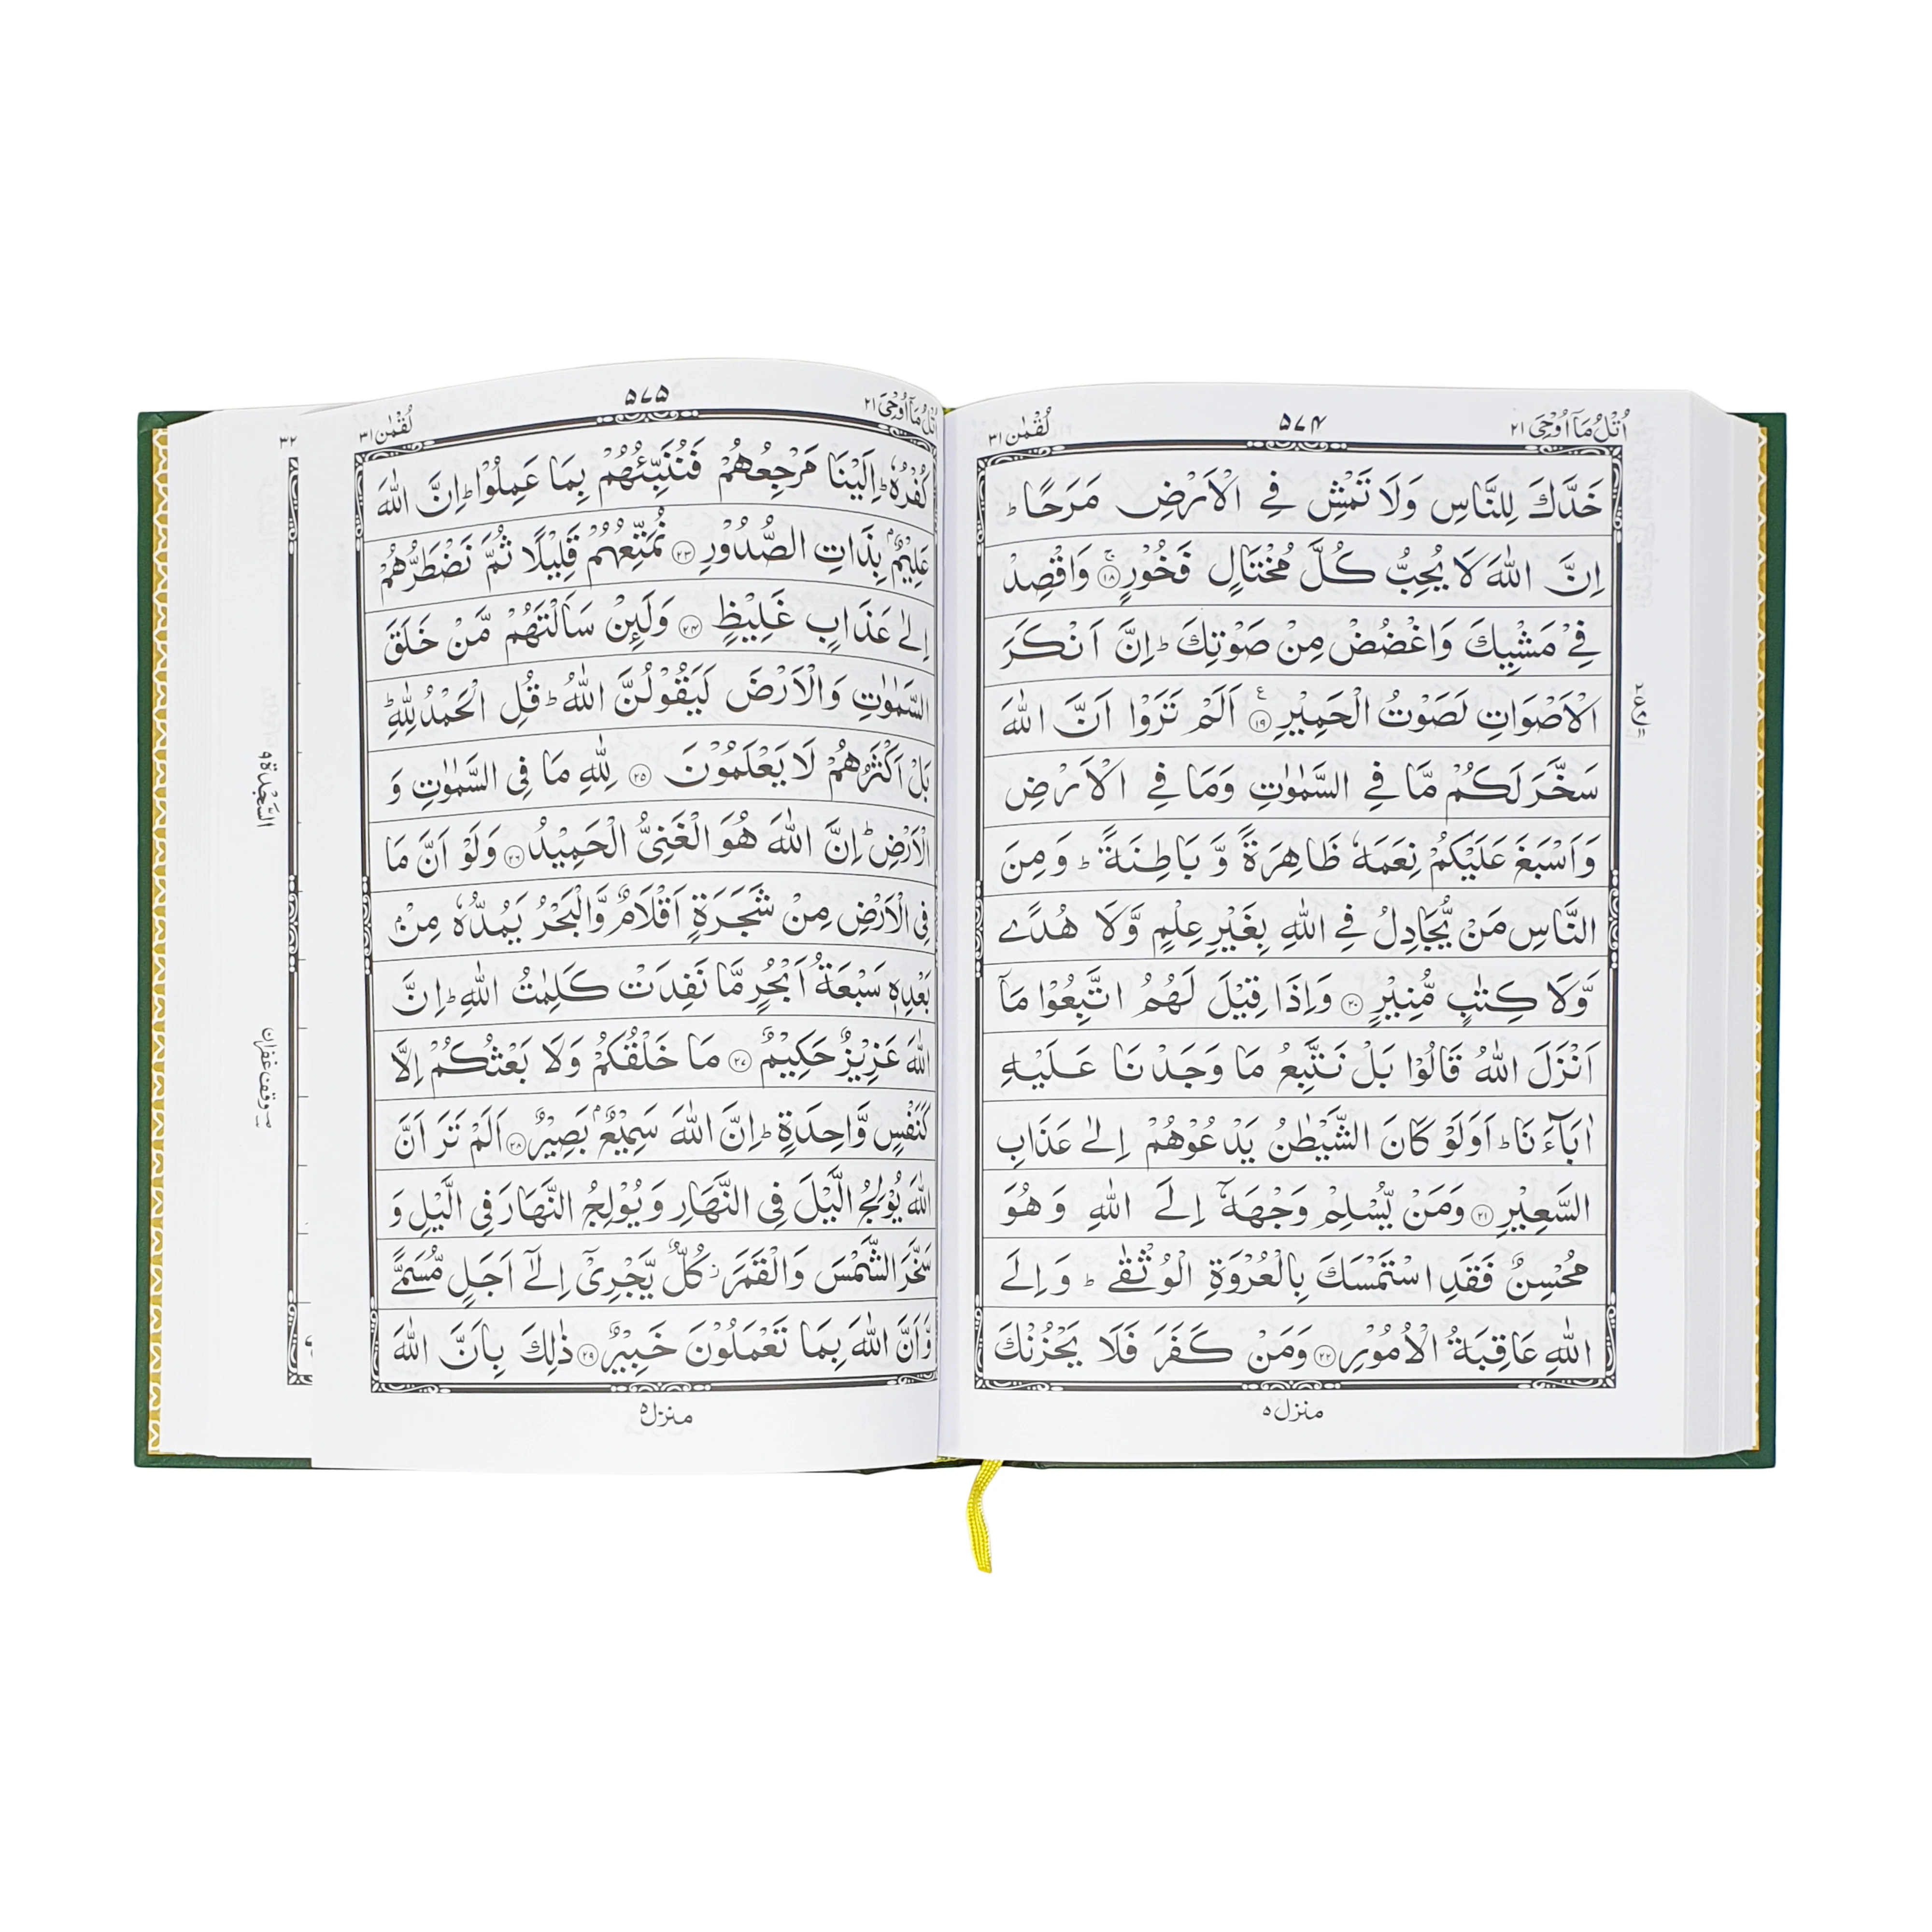 اُتْلُ مَاۤ اُوْحِیَ ۲۱
۵۷۴
لُقْمٰن ۳۱
خَدَّكَ لِلنَّاسِ وَلَا تَمْشِ فِی الْاَرْضِ مَرَحًا ؕ
اِنَّ اللّٰهَ لَا یُحِبُّ كُلَّ مُخْتَالٍ فَخُوْرٍ ۚ ﴿۱۸﴾ وَاقْصِدْ
فِیْ مَشْیِكَ وَاغْضُضْ مِنْ صَوْتِكَ ؕ اِنَّ اَنْكَرَ
الْاَصْوَاتِ لَصَوْتُ الْحَمِیْرِ ﴿۱۹﴾ اَلَمْ تَرَوْا اَنَّ اللّٰهَ
سَخَّرَ لَكُمْ مَّا فِی السَّمٰوٰتِ وَمَا فِی الْاَرْضِ
وَاَسْبَغَ عَلَیْكُمْ نِعَمَهٗ ظَاهِرَةً وَّ بَاطِنَةً ؕ وَمِنَ
النَّاسِ مَنْ یُّجَادِلُ فِی اللّٰهِ بِغَیْرِ عِلْمٍ وَّلَا هُدًی
وَّلَا كِتٰبٍ مُّنِیْرٍ ﴿۲۰﴾ وَاِذَا قِیْلَ لَهُمُ اتَّبِعُوْا مَاۤ
اَنْزَلَ اللّٰهُ قَالُوْا بَلْ نَتَّبِعُ مَا وَجَدْنَا عَلَیْهِ
اٰبَآءَنَا ؕ اَوَلَوْ كَانَ الشَّیْطٰنُ یَدْعُوْهُمْ اِلٰی عَذَابِ
السَّعِیْرِ ﴿۲۱﴾ وَمَنْ یُّسْلِمْ وَجْهَهٗۤ اِلَی اللّٰهِ وَهُوَ
مُحْسِنٌ فَقَدِ اسْتَمْسَكَ بِالْعُرْوَةِ الْوُثْقٰی ؕ وَاِلَی
اللّٰهِ عَاقِبَةُ الْاُمُوْرِ ﴿۲۲﴾ وَمَنْ كَفَرَ فَلَا یَحْزُنْكَ
منزل ۵
اُتْلُ مَاۤ اُوْحِیَ ۲۱
۵۷۵
لُقْمٰن ۳۱
كُفْرُهٗ ؕ اِلَیْنَا مَرْجِعُهُمْ فَنُنَبِّئُهُمْ بِمَا عَمِلُوْا ؕ اِنَّ اللّٰهَ
عَلِیْمٌۢ بِذَاتِ الصُّدُوْرِ ﴿۲۳﴾ نُمَتِّعُهُمْ قَلِیْلًا ثُمَّ نَضْطَرُّهُمْ
اِلٰی عَذَابٍ غَلِیْظٍ ﴿۲۴﴾ وَلَئِنْ سَاَلْتَهُمْ مَّنْ خَلَقَ
السَّمٰوٰتِ وَالْاَرْضَ لَیَقُوْلُنَّ اللّٰهُ ؕ قُلِ الْحَمْدُ لِلّٰهِ ؕ
بَلْ اَكْثَرُهُمْ لَا یَعْلَمُوْنَ ﴿۲۵﴾ لِلّٰهِ مَا فِی السَّمٰوٰتِ وَ
الْاَرْضِ ؕ اِنَّ اللّٰهَ هُوَ الْغَنِیُّ الْحَمِیْدُ ﴿۲۶﴾ وَلَوْ اَنَّ مَا
فِی الْاَرْضِ مِنْ شَجَرَةٍ اَقْلَامٌ وَّالْبَحْرُ یَمُدُّهٗ مِنْۢ
بَعْدِهٖ سَبْعَةُ اَبْحُرٍ مَّا نَفِدَتْ كَلِمٰتُ اللّٰهِ ؕ اِنَّ
اللّٰهَ عَزِیْزٌ حَكِیْمٌ ﴿۲۷﴾ مَا خَلْقُكُمْ وَلَا بَعْثُكُمْ اِلَّا
كَنَفْسٍ وَّاحِدَةٍ ؕ اِنَّ اللّٰهَ سَمِیْعٌۢ بَصِیْرٌ ﴿۲۸﴾ اَلَمْ تَرَ اَنَّ
اللّٰهَ یُوْلِجُ الَّیْلَ فِی النَّهَارِ وَیُوْلِجُ النَّهَارَ فِی الَّیْلِ وَ
سَخَّرَ الشَّمْسَ وَالْقَمَرَ ؗ كُلٌّ یَّجْرِیْۤ اِلٰۤی اَجَلٍ مُّسَمًّی
وَّاَنَّ اللّٰهَ بِمَا تَعْمَلُوْنَ خَبِیْرٌ ﴿۲۹﴾ ذٰلِكَ بِاَنَّ اللّٰهَ
منزل ۵
۳۲
السَّجْدَة ۹
وقف غفران